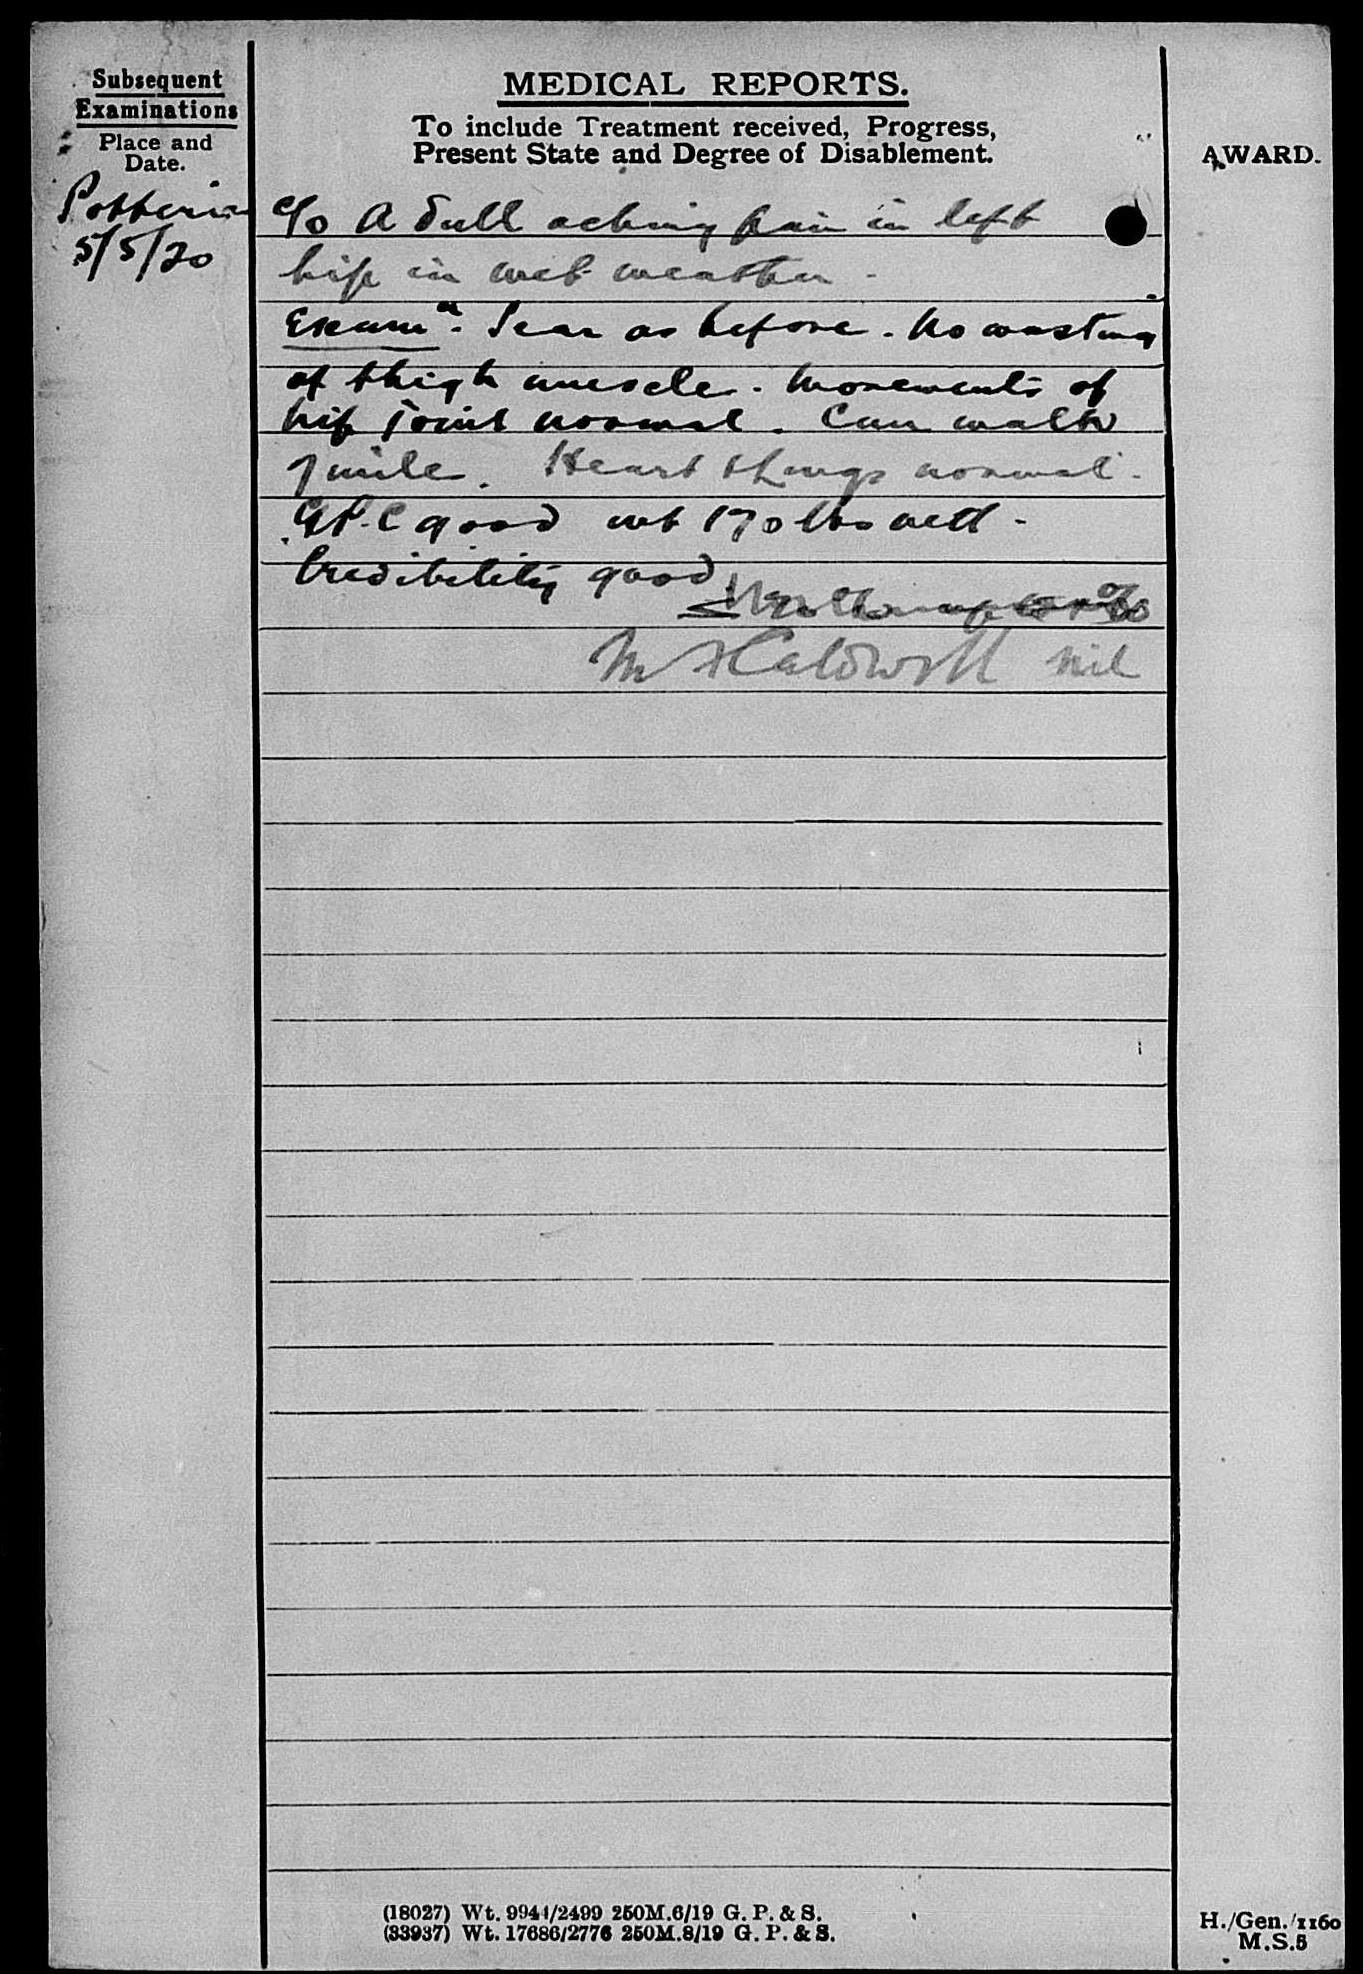 Subsequent
Examinations
Place and
Date.
MEDICAL REPORTS.
To include Treatment received, Progress,
Present State and Degree of Disablement.
AWARD.
Potteries
5/5/20
c/o A dull aching pain in left
hip in wet weather -
Examn. Scar as before. No wasting
of thigh muscle. Movements of
hip joint normal. Can walk
7 mile. Heart & Lungs normal.
G.P.C good wt 170 lbs nett -
Credibility good
M Caldwell nil
(18027) Wt. 9941/2499 250M.6/19 G. P. & S.
(33937) Wt. 17686/2776 250M.8/19 G. P. & S.
H./Gen./1160
M.S.5